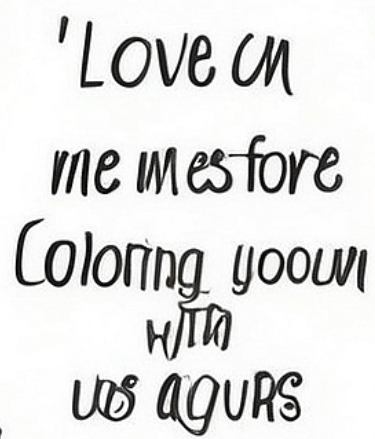 'Love cn
me im es fore
Coloring yooun
with
uos agurs